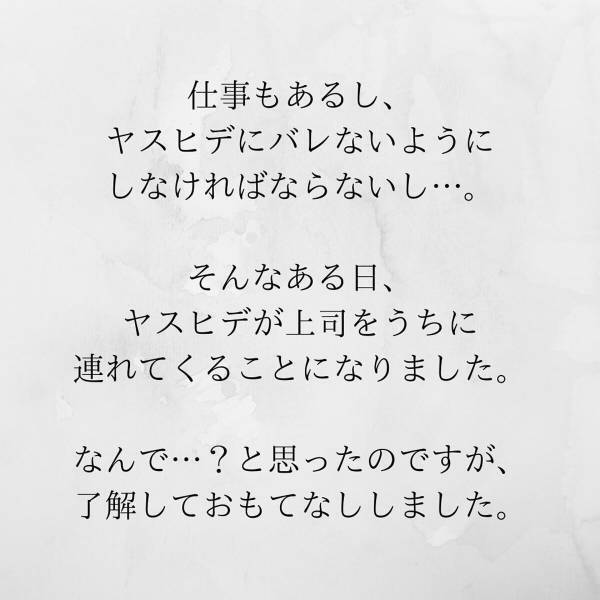 仕事もあるし、
ヤスヒデにバレないように
しなければならないし…。
そんなある日、
ヤスヒデが上司をうちに
連れてくることになりました。
なんで…？と思ったのですが、
了解しておもてなししました。